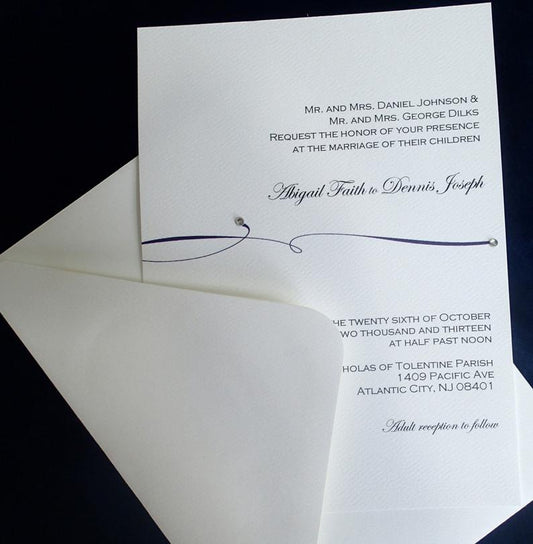 Mr. and Mrs. Daniel Johnson &
Mr. and Mrs. George Dilks
Request the honor of your presence
at the marriage of their children
Abigail Faith to Dennis Joseph
twenty sixth of October
thousand and thirteen
at half past noon
of Tolentine Parish
1409 Pacific Ave
Atlantic City, NJ 08401
Adult reception to follow